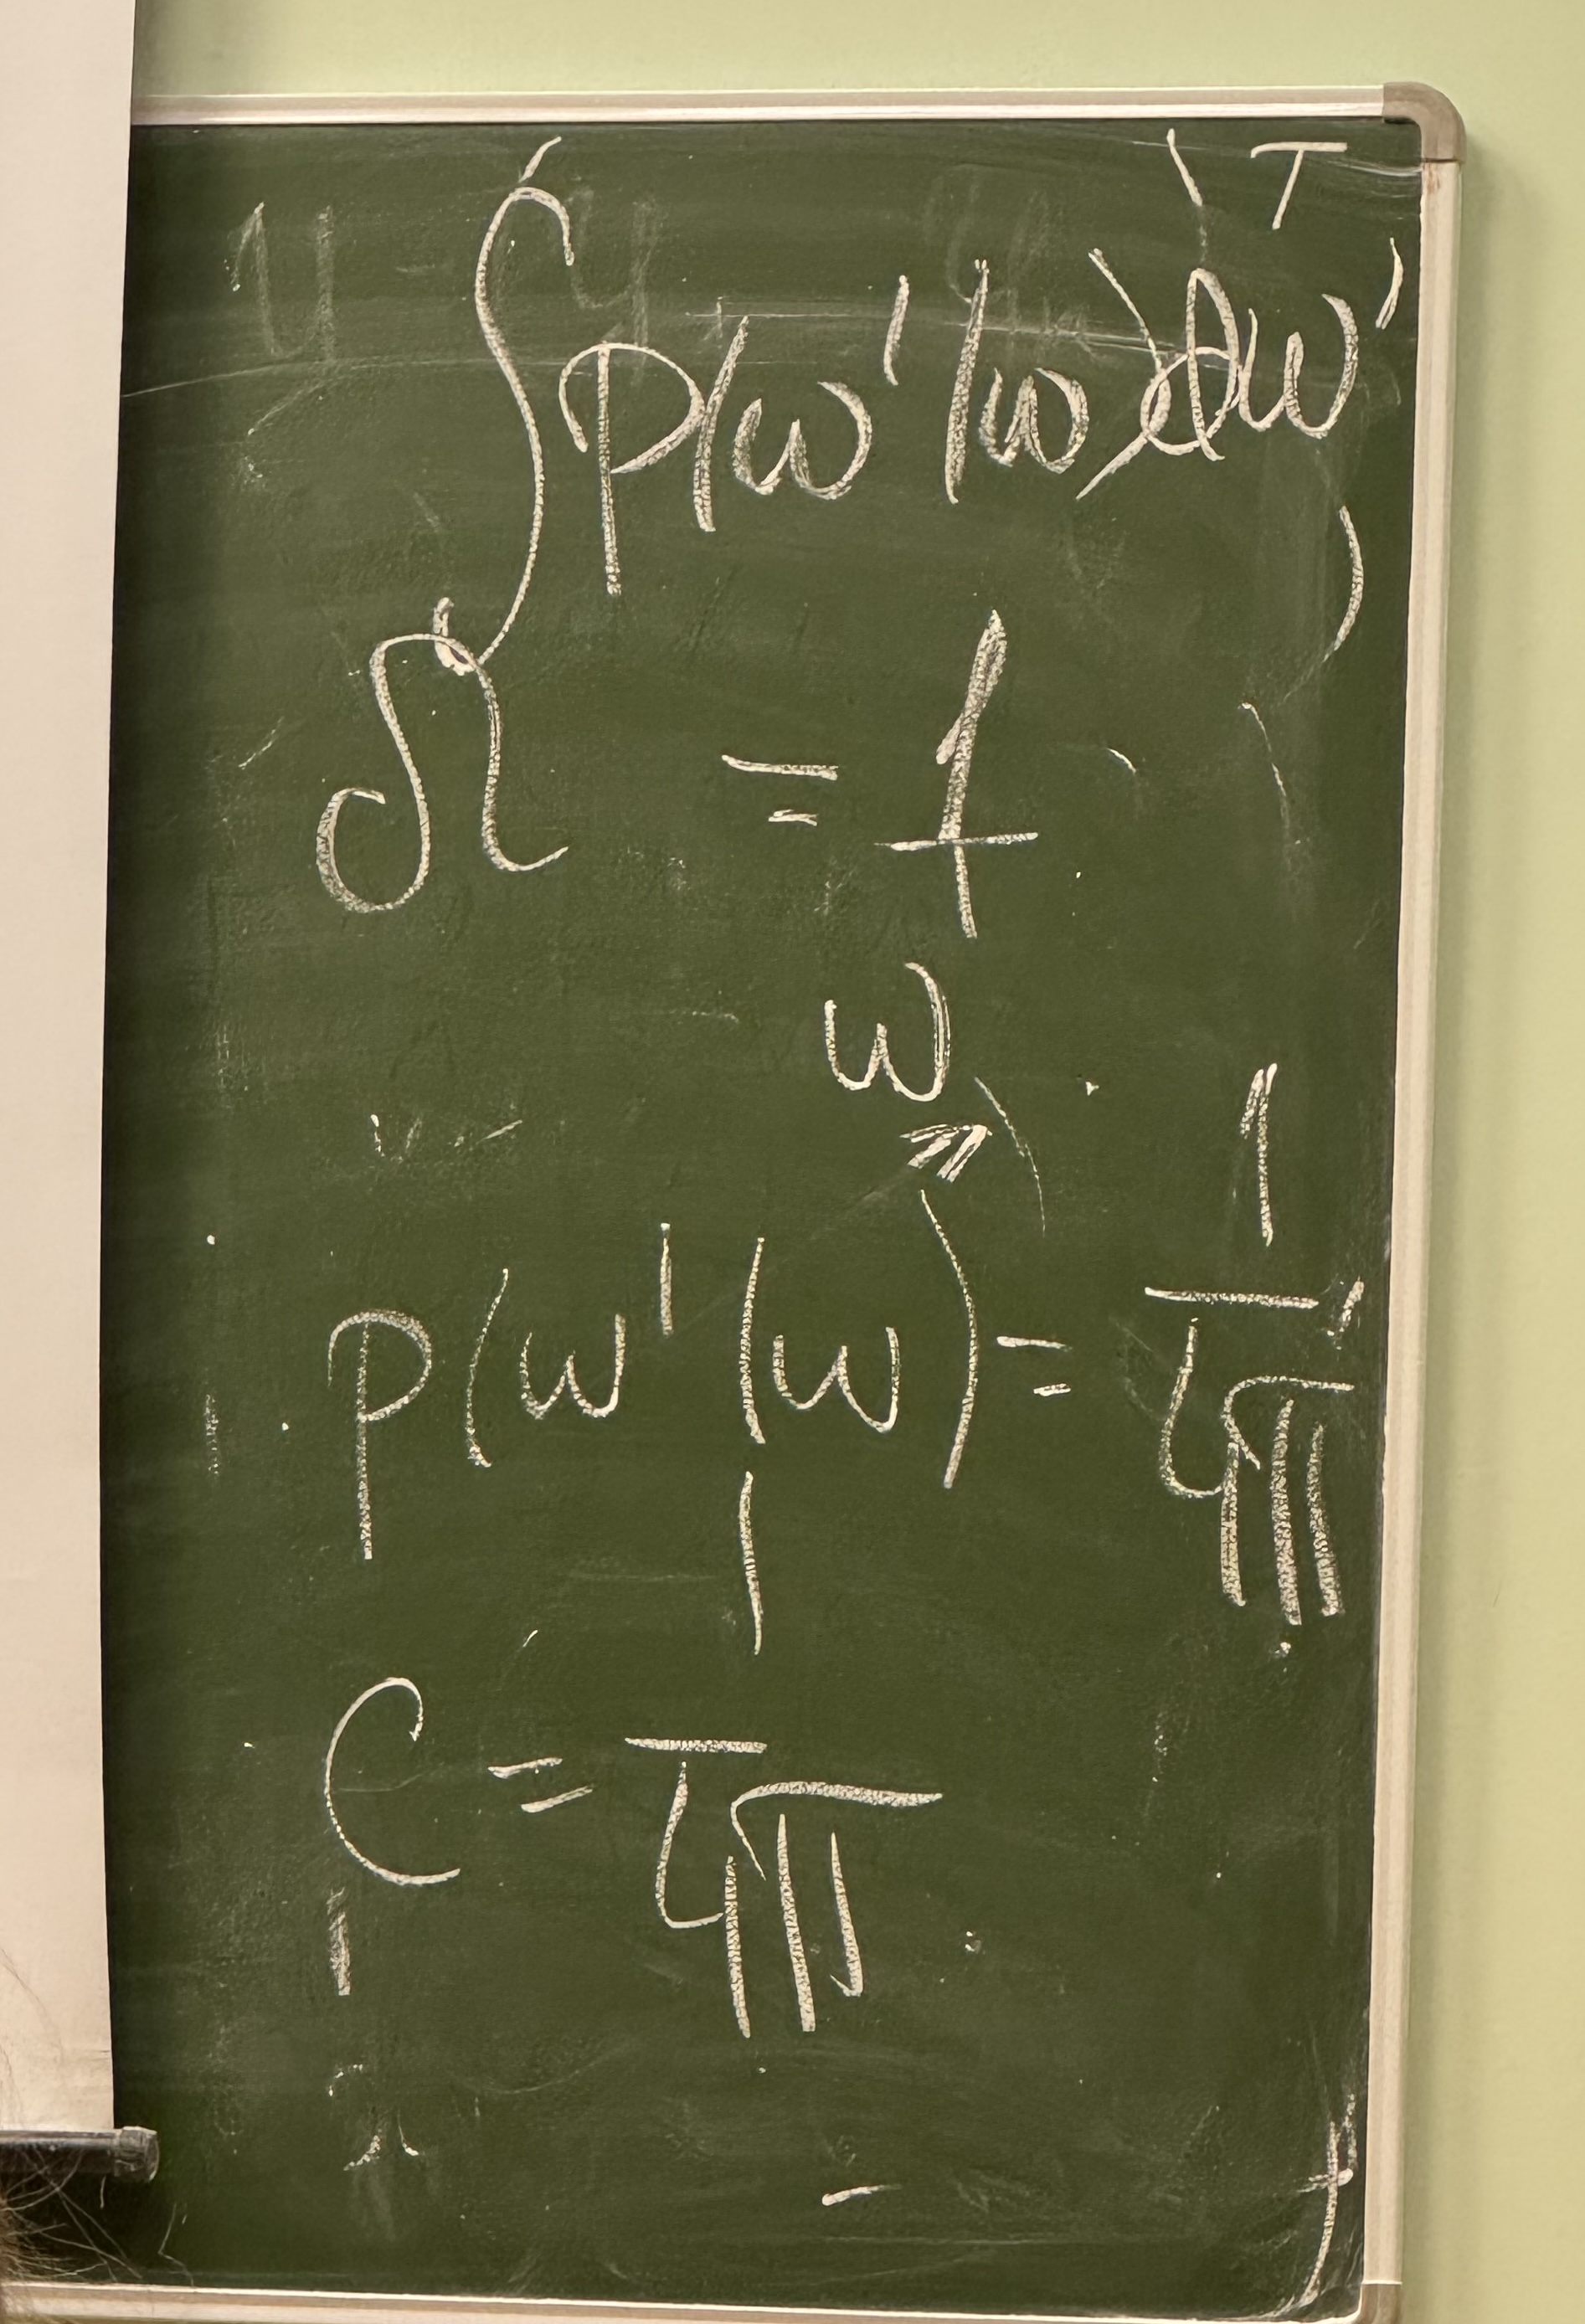 ∫ p(ω'|ω)dω'
Ω = 1
ω
p(ω'|ω) = 1/4π
C = 1/4π